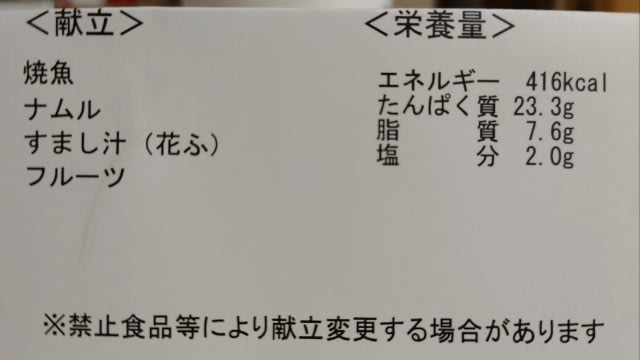 ＜献立＞
焼魚
ナムル
すまし汁（花ふ）
フルーツ
＜栄養量＞
エネルギー 416kcal
たんぱく質 23.3g
脂　　　質 7.6g
塩　　　分 2.0g
※禁止食品等により献立変更する場合があります